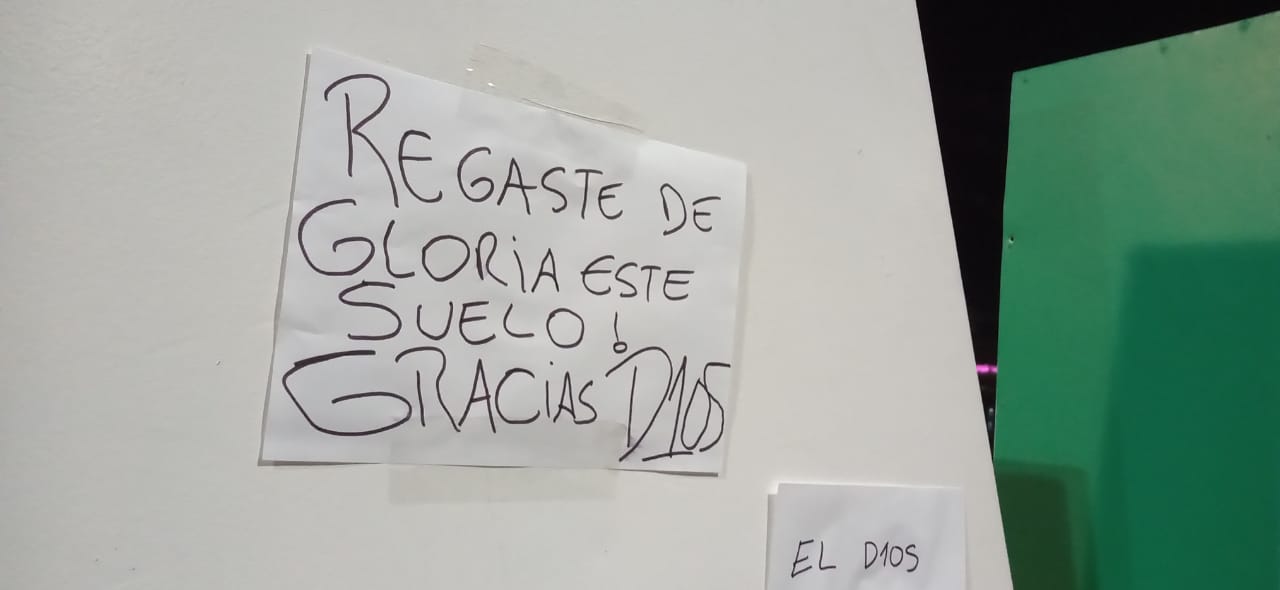 REGASTE DE
GLORiA ESTE
SUELO!
GRACiAS D10S
EL D10S